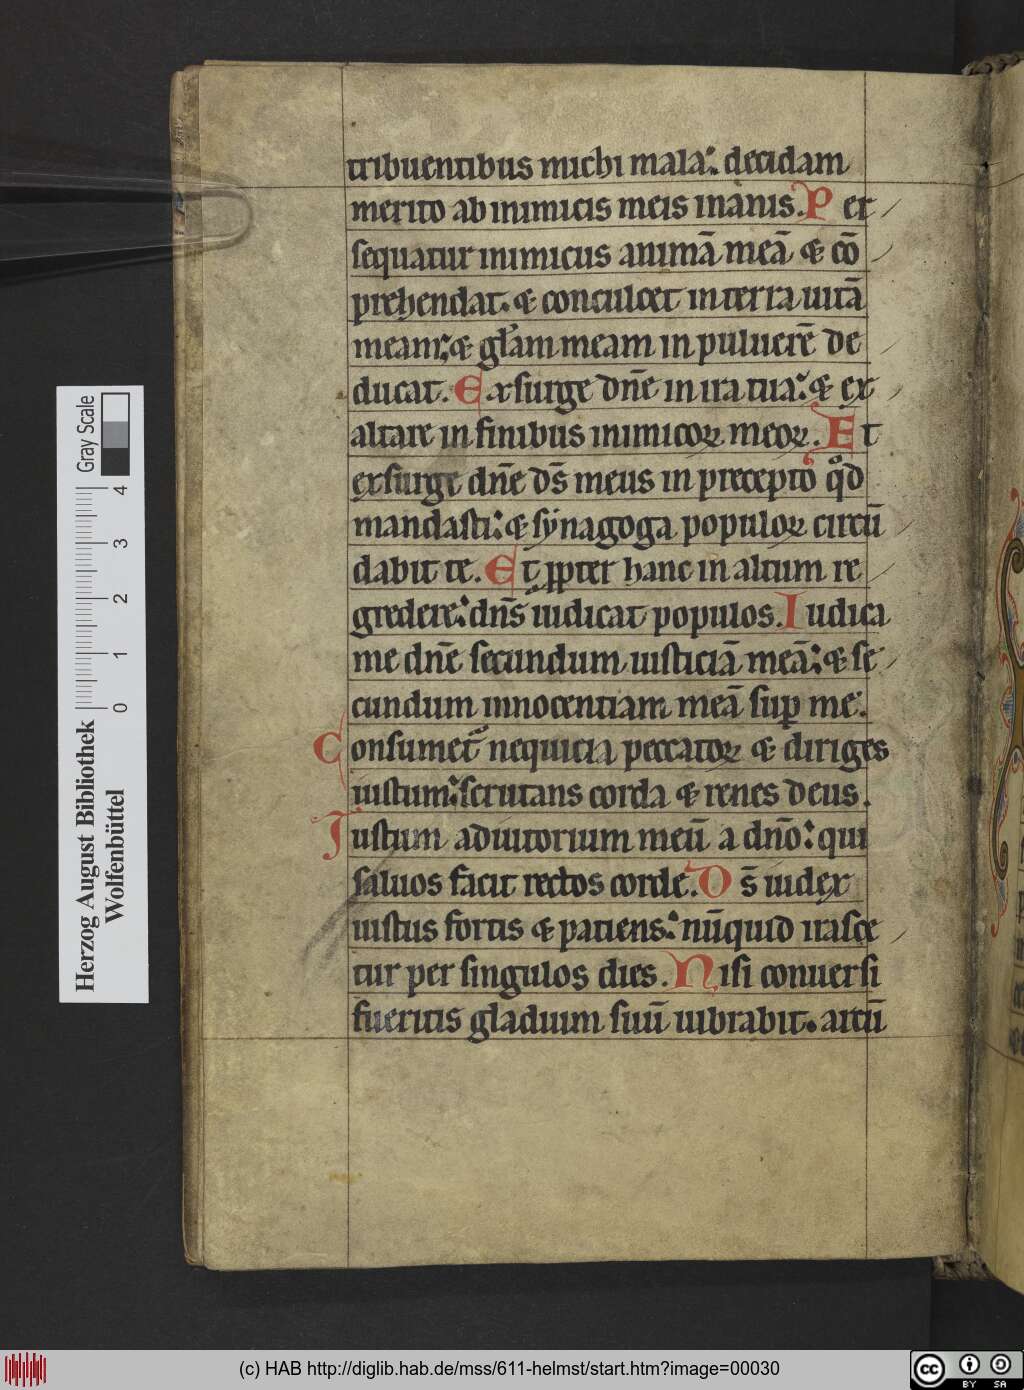 tribuentibus michi mala: decidam
merito ab inimicis meis inanis. Per
sequatur inimicus animā meā & cō
prehendat. & conculcet in terra uitā
meam: & gl̄am meam in puluerē de
ducat. Exsurge dn̄e in ira tua: & ex
altare in finibus inimicoꝝ meoꝝ. Et
exsurge dn̄e ds̄ meus in precepto qͦd
mandasti: & synagoga populoꝝ circū
dabit te. Et ꝓpter hanc in altum re
gredere: dn̄s iudicat populos. Iudica
me dn̄e secundum iusticiā meā: & se
cundum innocentiam meā suꝑ me.
Consumet᷑ nequicia peccatoꝝ & diriges
iustum: scrutans corda & renes deus.
Iustum adiutorium meū a dn̄o: qui
saluos facit rectos corde. Ds̄ iudex
iustus fortis & patiens: nūquid irasce
tur per singulos dies. Nisi conuersi
fueritis gladium suū uibrabit. arcū
Herzog August Bibliothek
Wolfenbüttel
Gray Scale
0 1 2 3 4
(c) HAB http://diglib.hab.de/mss/611-helmst/start.htm?image=00030
cc BY SA